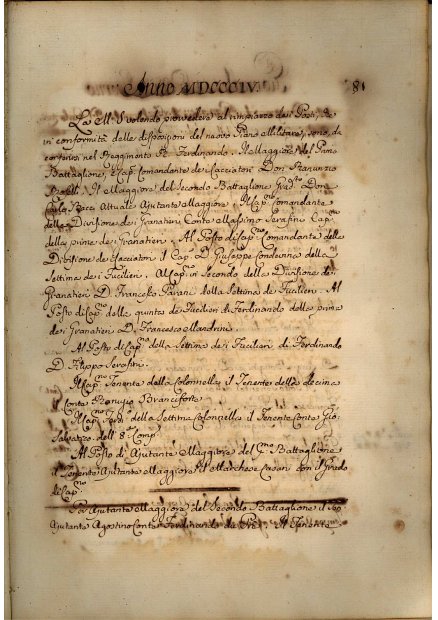 Anno MDCCCIV. 81
La M. S. volendo provvedere al rimpiazzo dei Posti, che
in conformità delle disposizioni del nuovo Piano Militare, sono, da
nel Reggimento R. Ferdinando. Maggiore del Primo
Battaglione, il Cap. Comandante dei Cacciatori Don Ranunzio
Maggiore del Secondo Battaglione Don
Carlo Rocca Attuale Ajutante Maggiore. Comandante
della Divisione dei Granatieri Conte Massimo Serafini Cap.no
della prima dei Granatieri. Al Posto di Cap.no Comandante della
Divisione dei Cacciatori il Cap. D. Giuseppe della
Settima dei Fucilieri. Al Cap.no in Secondo della Divisione dei
Granatieri D. Francesco della Settima de Fucilieri. Al
Posto di Cap.no della quinta de Fucilieri di Ferdinando della prima
dei Granatieri D. Francesco Mandrini
Al Posto di Cap.no della Settima dei Fucilieri di Ferdinando
D. Filippo Serafini.
Cap.no Tenente della Colonnella il Tenente della decima
il Conte Branciforte
della Settima Colonnella il Tenente Conte
Salvatore dell' 8.a Comp.a
Al Posto di Ajutante Maggiore del P.mo Battaglione
il Tenente Ajutante Maggiore il Marchese Casari con il Grado
di Cap.no
Ajutante Maggiore del Secondo Battaglione il
Ajutante Agostino Conte Ferdinando il Tenente